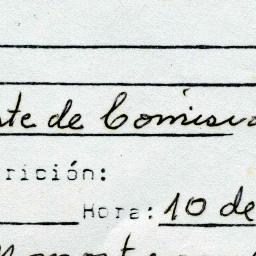 te de Comisi
rición:
Hora: 10 de